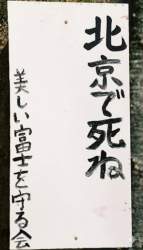 北京で死ね
美しい富士を守る会